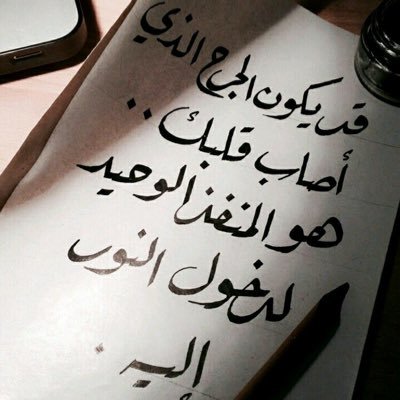 قد يكون الجرح الذي
أصاب قلبك ..
هو المنفذ الوحيد
لدخول النور
إليه .